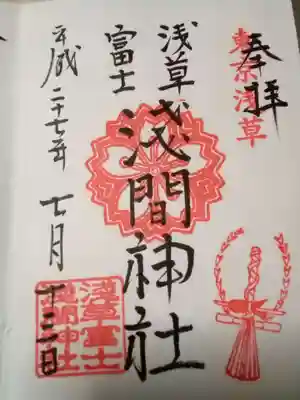 奉拝
東京浅草
浅草
富士
浅間神社
平成二十七年 七月 十三日
浅草富士
浅間神社